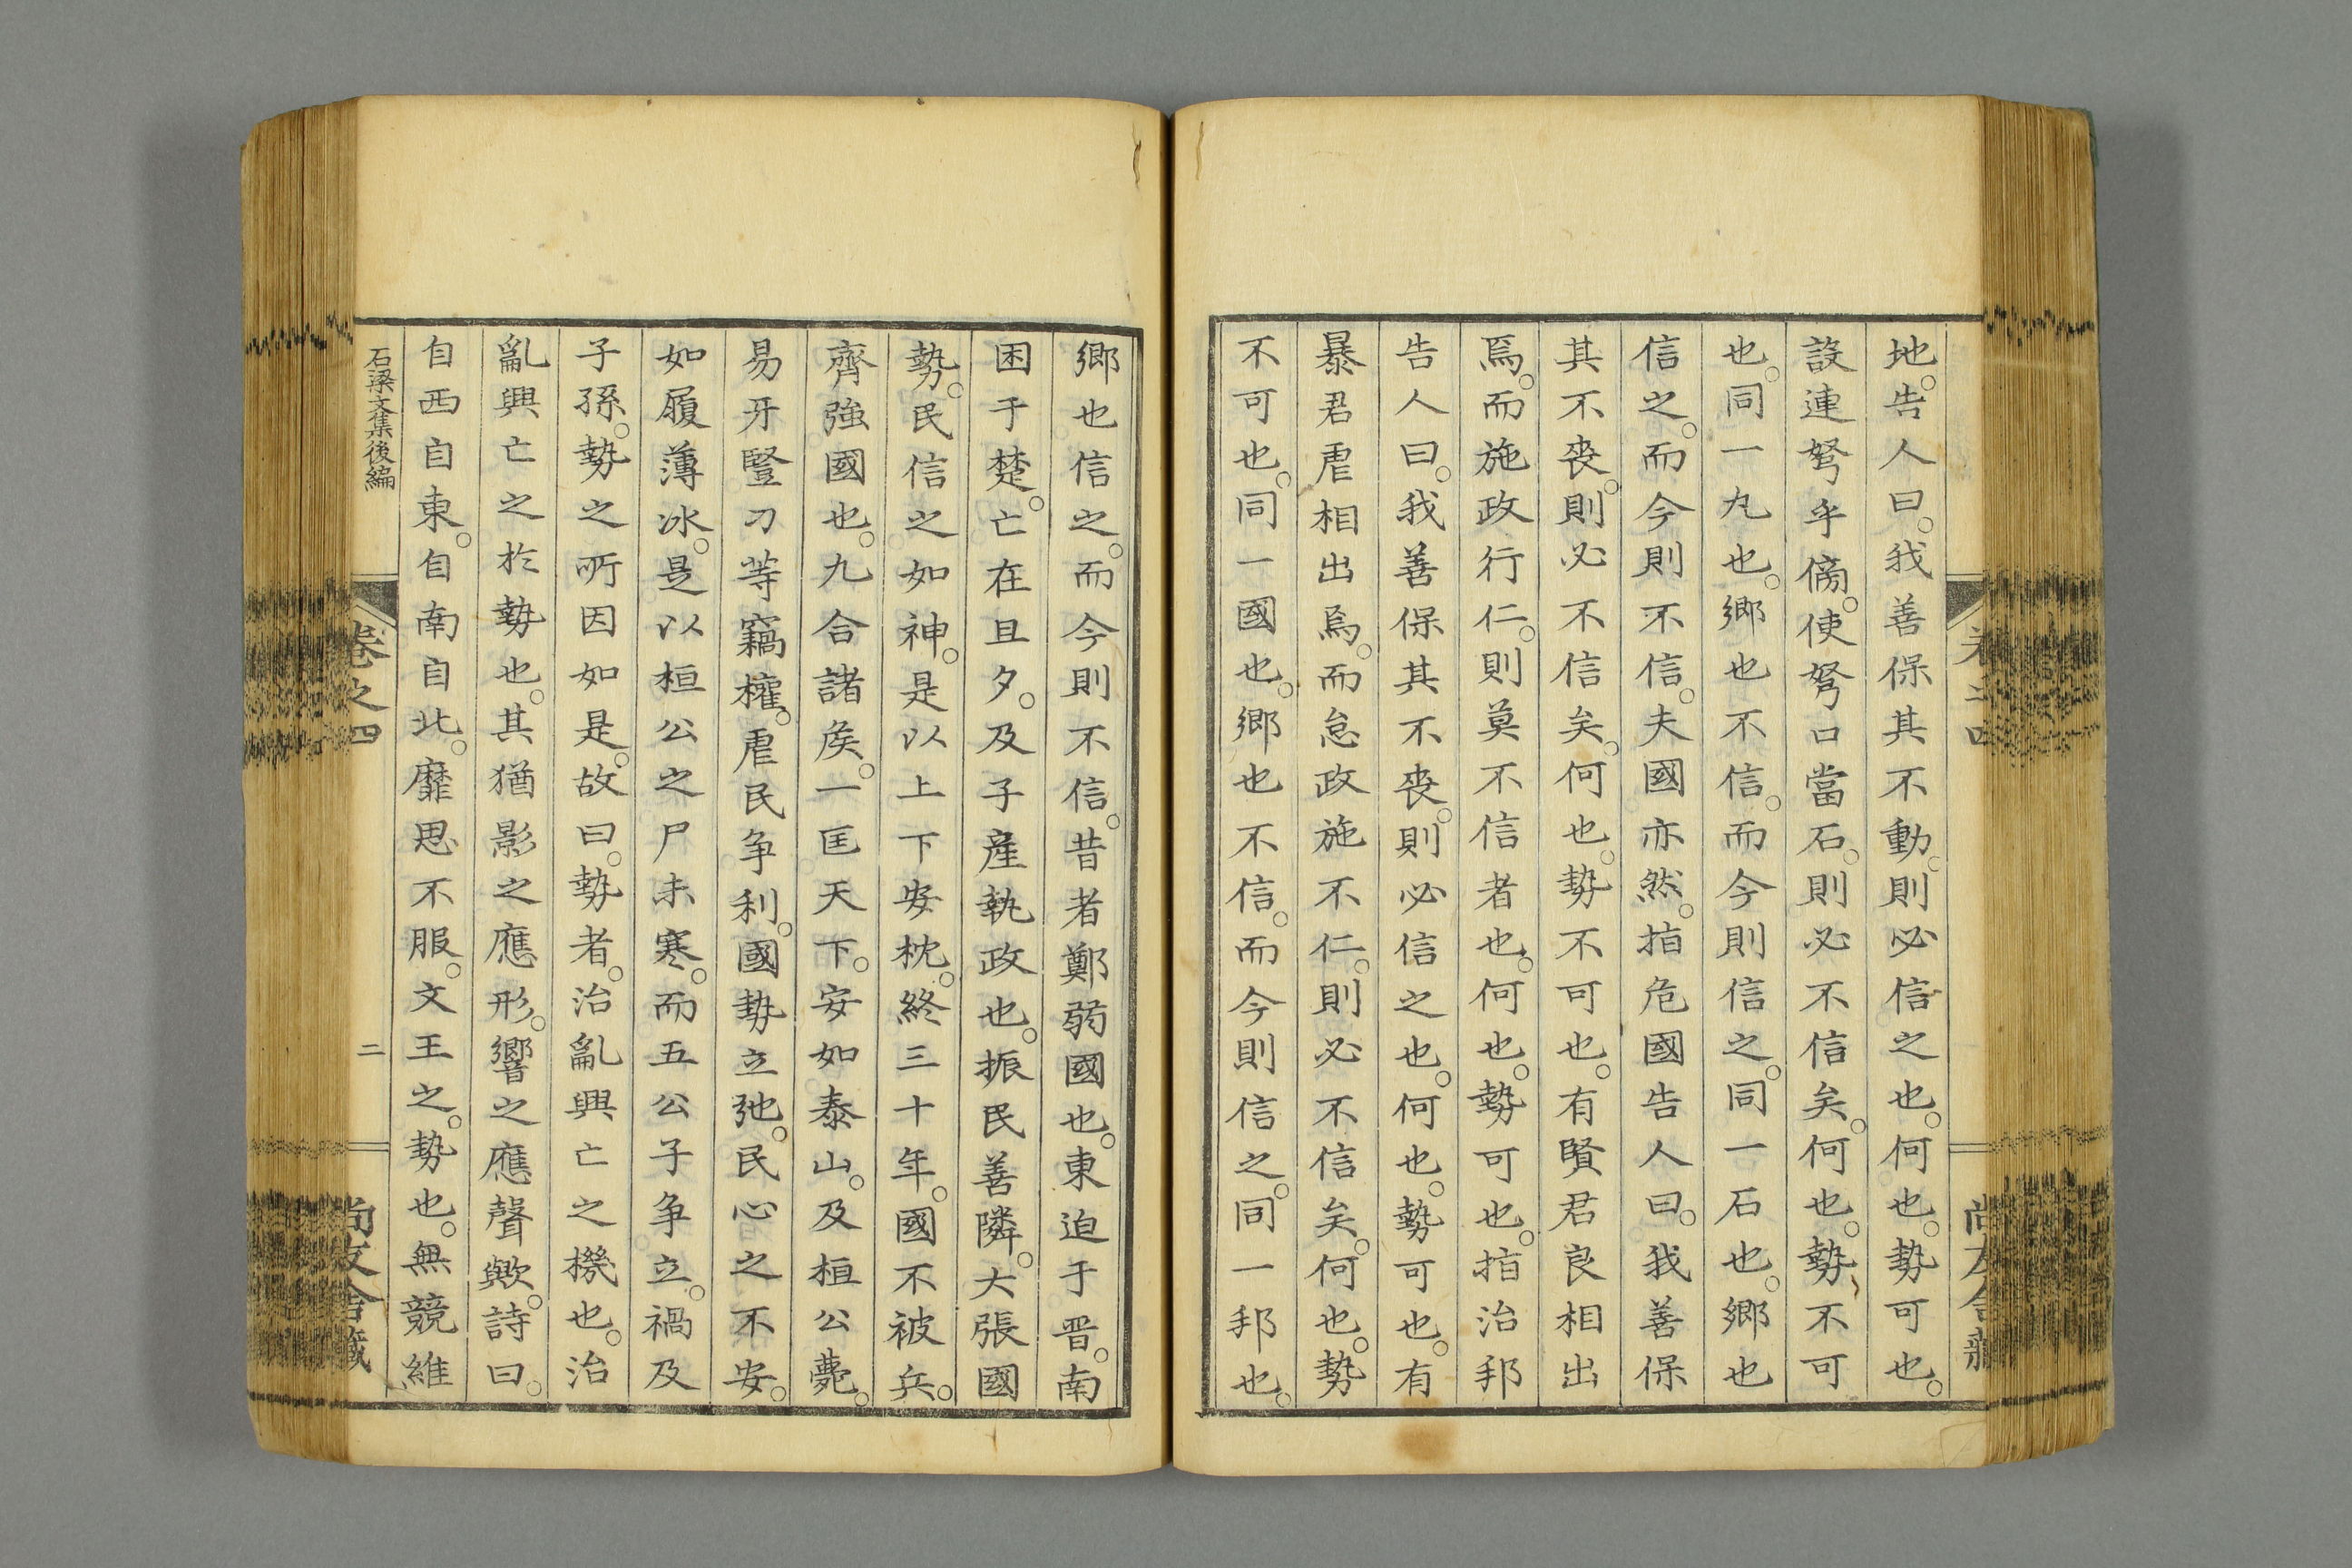 地。告人曰。我善保其不動。則必信之也。何也。勢可也。
設連弩乎傍。使弩口當石。則必不信矣。何也。勢不可
也。同一丸也。鄉也不信。而今則信之。同一石也。鄉也
信之。而今則不信。夫國亦然。指危國告人曰。我善保
其不喪。則必不信矣。何也。勢不可也。有賢君良相出
焉。而施政行仁。則莫不信者也。何也。勢可也。指治邦
告人曰。我善保其不喪。則必信之也。何也。勢可也。有
暴君虐相出焉。而怠政施不仁。則必不信矣。何也。勢
不可也。同一國也。鄉也不信。而今則信之。同一邦也。
鄉也信之。而今則不信。昔者鄭弱國也。東迫于晋。南
困于楚。亡在旦夕。及子產執政也。振民善隣。大張國
勢。民信之如神。是以上下安枕。終三十年。國不被兵。
齊強國也。九合諸矦。一匡天下。安如泰山。及桓公薨。
易牙豎刀等竊權。虐民争利。國勢立弛。民心之不安。
如履薄冰。是以桓公之尸未寒。而五公子争立。禍及
子孫。勢之所因如是。故曰。勢者。治亂興亡之機也。治
亂興亡之於勢也。其猶影之應形。響之應聲歟。詩曰。
自西自東。自南自北。靡思不服。文王之。勢也。無競維
石梁文集後編
卷之四
二
尚友舍藏